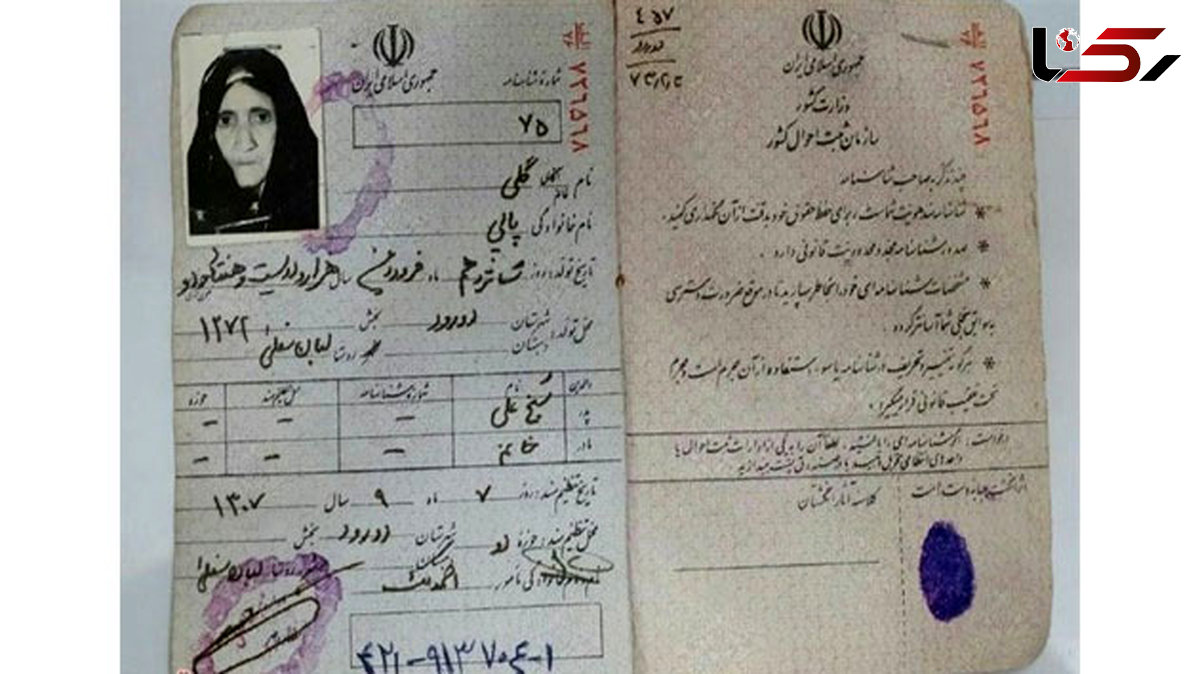 رکنا
۴۵۷
جمهوری اسلامی ایران
وزارت کشور
سازمان ثبت احوال کشور
۷۲۶۵۶۸
چند تذکر به صاحب شناسنامه
* شناسنامه سند هویت شماست، برای حفظ حقوق خود بدقت از آن نگهداری کنید.
* صدور شناسنامه مجدد محدودیت قانونی دارد.
* مشخصات شناسنامه‌ای خود را بخاطر بسپارید تا در موقع ضرورت دسترسی
به سوابق سجلی شما آسانتر گردد.
* هرگونه تغییر و تحریف در شناسنامه یا سوء استفاده از آن جرم است و مجرم
تحت تعقیب قانونی قرار میگیرد.
درخواست: اگر شناسنامه‌ای را یافتید، لطفاً آن را به یکی از ادارات ثبت احوال یا
واحدهای انتظامی تحویل دهید یا در صندوق پست بیندازید
کلاسه آثار انگشتان
جمهوری اسلامی ایران
شماره شناسنامه
۷۲۶۵۶۸
۷۵
نام گلی
نام خانوادگی پالی
تاریخ تولد: روز شانزدهم ماه فروردین سال هزار و دویست و هفتاد و دو
محل تولد: شهرستان دورود بخش ۱۲۷۲
دهستان روستا لبان سفلی
والدین نام شماره شناسنامه محل تنظیم سند حوزه
پدر شیخ علی – – –
مادر خانم – – –
تاریخ تنظیم سند: روز ۷ ماه ۹ سال ۱۳۰۷
محل تنظیم سند: حوزه دو شهرستان دورود بخش
لبان سفلی
نام خانوادگی مامور
۴۲۱-۹۱۳۷۰۴-۱